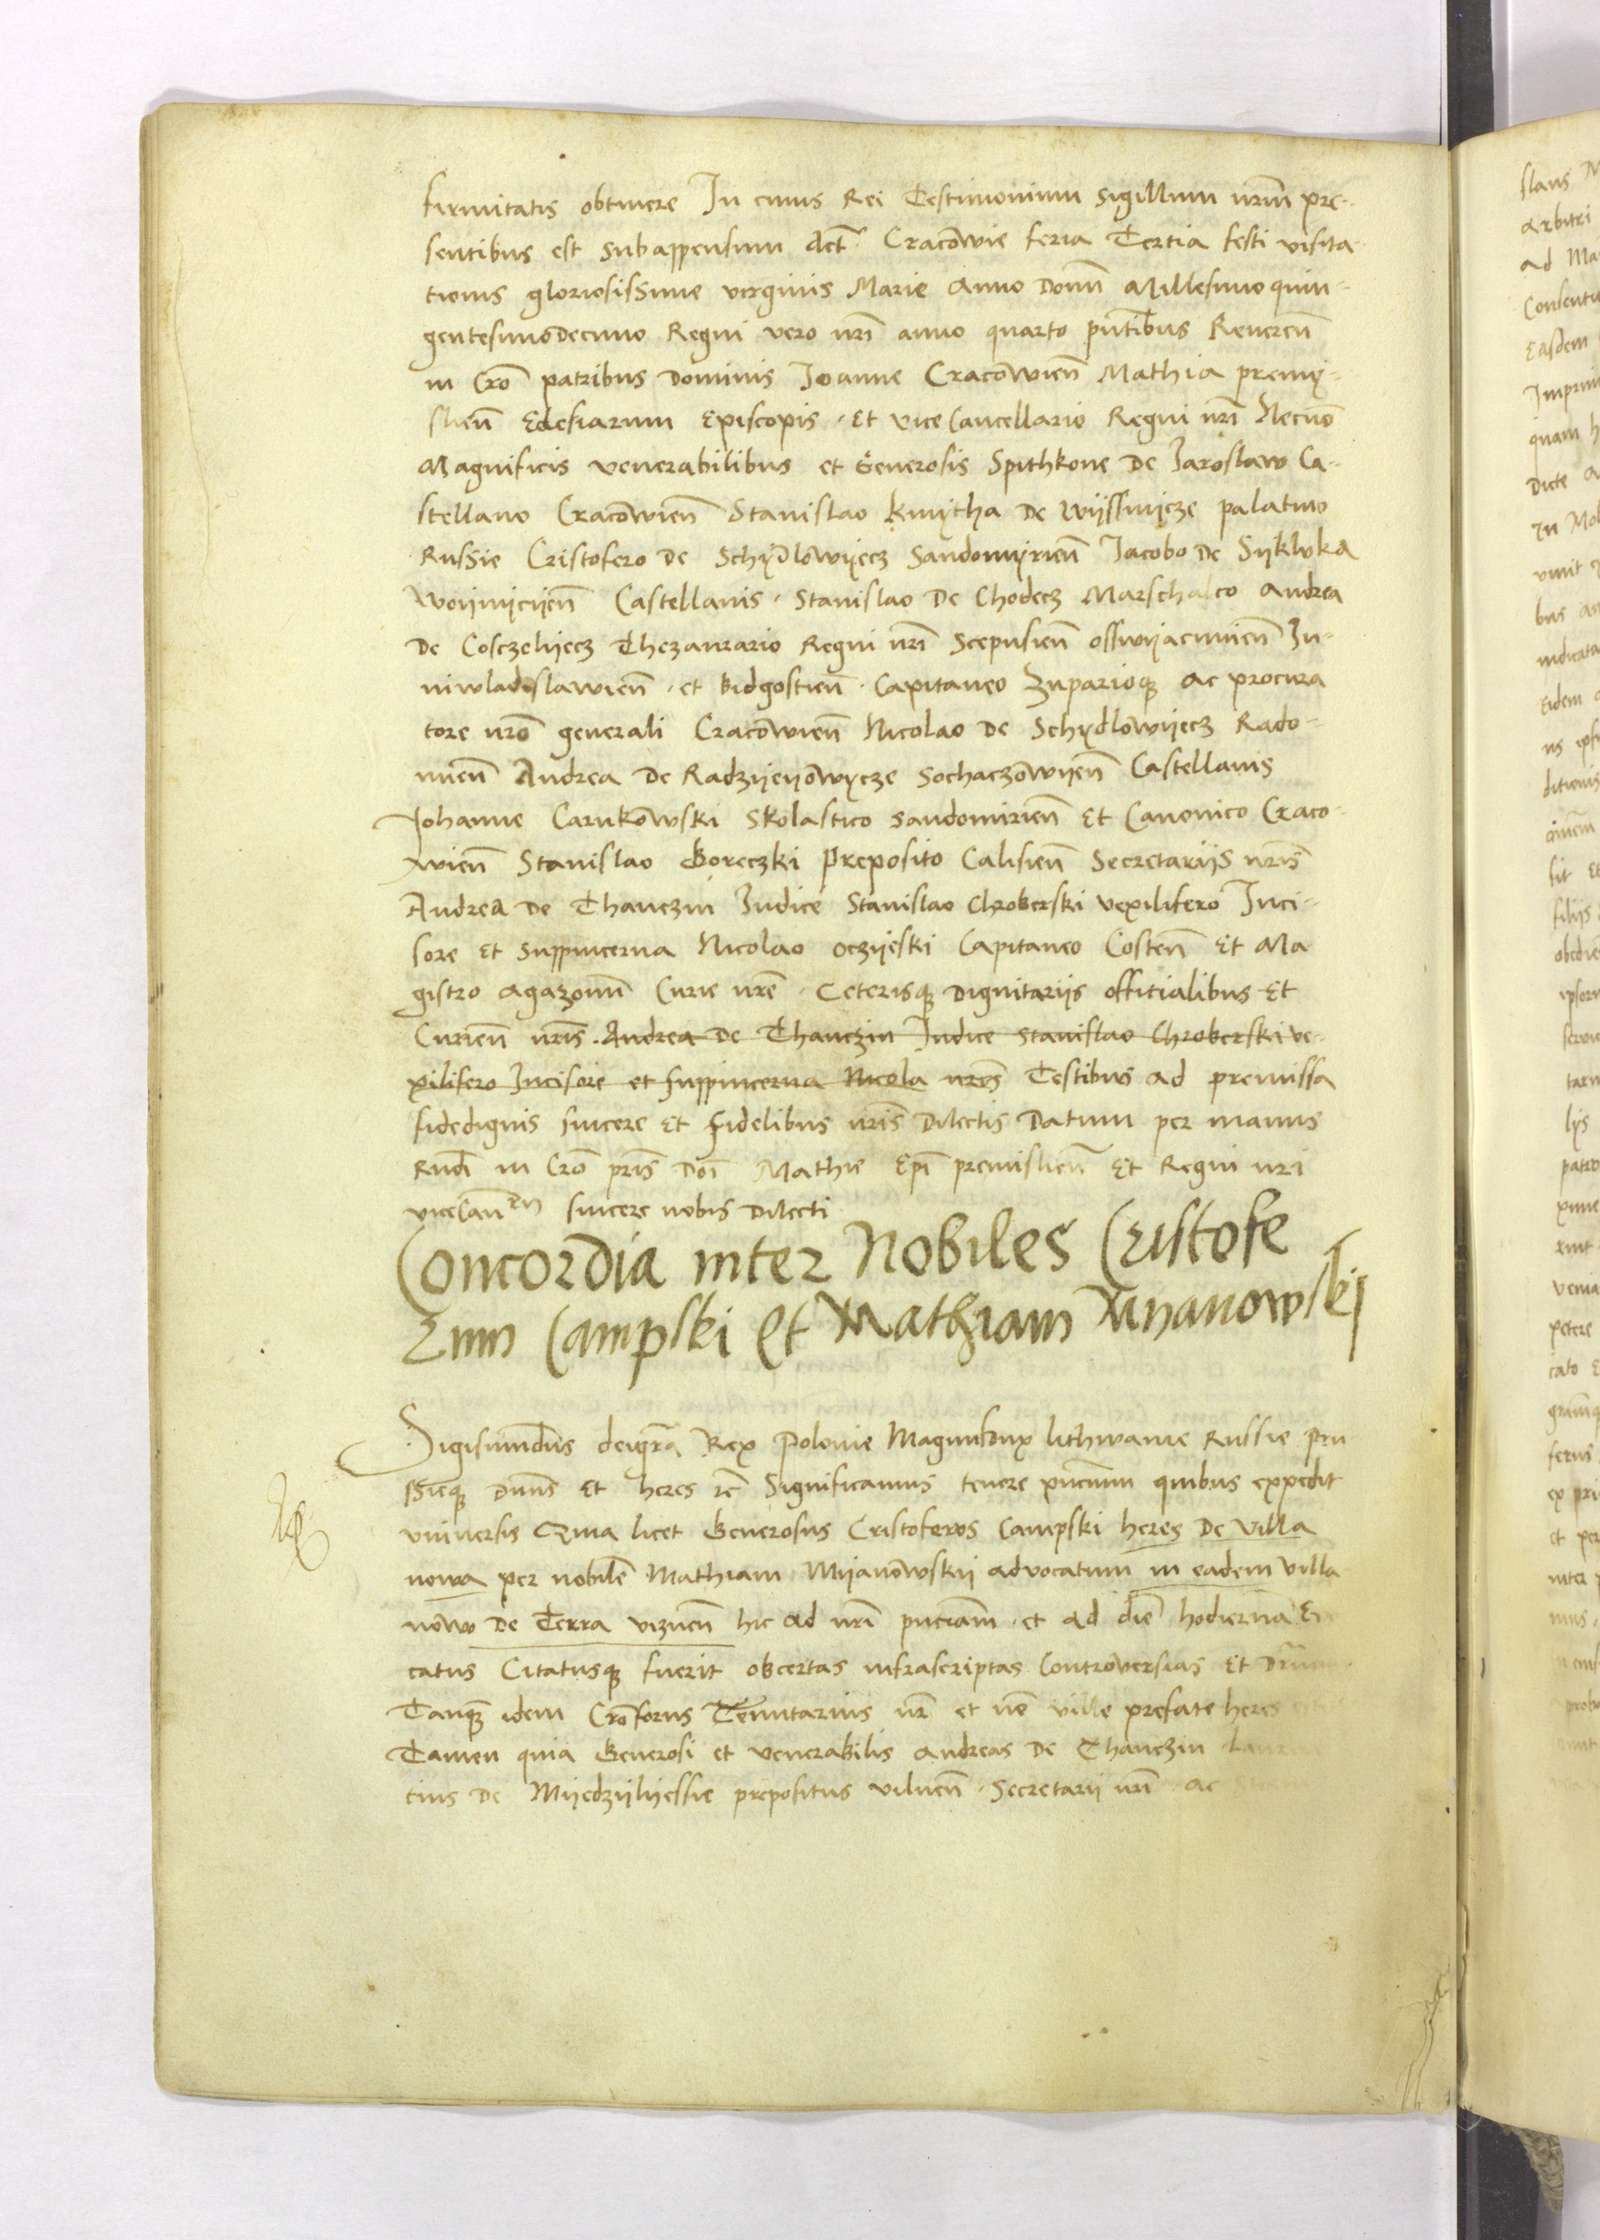 firmitatis obtinere In cuius Rei Testimonium sigillum nrm̄ pre-
sentibus est subappensum Act Cracowie feria Tertia festi visita
tionis gloriosissime virginis Marie Anno Domī Millesimo quin-
gentesimo Decimo Regni vero nrī anno quarto pn̄tibus Reueren̄
in Cro patribus Dominis Joanne Cracowien̄ Mathia premi-
slien̄ Eclesiarum Episcopis. Et vice Cancellario Regni nrī Necno
Magnificis venerabilibus et Generosis Spithkone De Jaroslaw Ca-
stellano Cracowien̄ Stanislao kmitha De wijssnijcze palatino
Russie Cristofero De Schijdlowijecz Sandomijrien̄ Jacobo De Sijklvka
Woijnijcijen̄ Castellanis. Stanislao De Chodecz Marschalco Andrea
De Cosczelijecz Thezaurario Regni nrī Scepusien̄ osswijacimien̄ Ju-
niwladislawien̄. et bidgostien̄. Capitaneo Zuparioqȝ ac procura
tore nrō generali Cracowien̄ Nicolao De Schijdlowijecz Rado-
mien̄ Andrea De Radzijeijowijcze Sochaczowijen̄ Castellanis
Johanne Carnkowski Skolastico sandomirien̄ Et Canonico Craco-
wien̄ Stanislao Goreczki Preposito Calisien̄ Secretariis nrīs
Andrea De Thanczin Judice Stanislao Chroberski vexilifero Inci-
sore Et suppincerna Nicolao oczijeski Capitaneo Costen̄ Et Ma
gistro agazonū Curie nrē. Ceterisqȝ Dignitariis officialibus Et
Curien̄ nrīs. Andrea De Thanczin Judice Stanislao Chroberski ve-
xilifero Incisore et suppincerna Nicola nrīs Testibus ad premissa
fidedignis sincere Et fidelibus nrīs Dilectis Datum per manus
Rndī in Cro prīs Doī Mathie Epī premislien̄ Et Regni nri
viceCan̄ sincere nobis Dilecti
Concordia inter Nobiles Cristofe
Rum Campski Et Mathiam Mijanowskij
Sigismundus deigrā Rex Polonie Magnusdux lithwanie Russie Pru
ssieqȝ Dnūs Et heres rc̄ Significamus tenore pn̄cium quibus expedit
vniuersis Quia licet Generosus Cristoferos Campski heres De Villa
nowa per nobilē Mathiam Mijanowskij advocatum in eadem villa
nowo De Terra vizuen̄ hic ad nrī pn̄ciam. et ad diē hodiernā
catus Citatusqȝ fuerit obcertas infrascriptas Controversias Et
Tanqȝ idem Crō̄forus Tenutarius nr̄ et ville prefate heres
Tamen quia Generosi et venerabilis Andreas De Thanczin Lauren
cius De Mijedzijlijessie prepositus vilnen̄. Secretarii nrī. ac